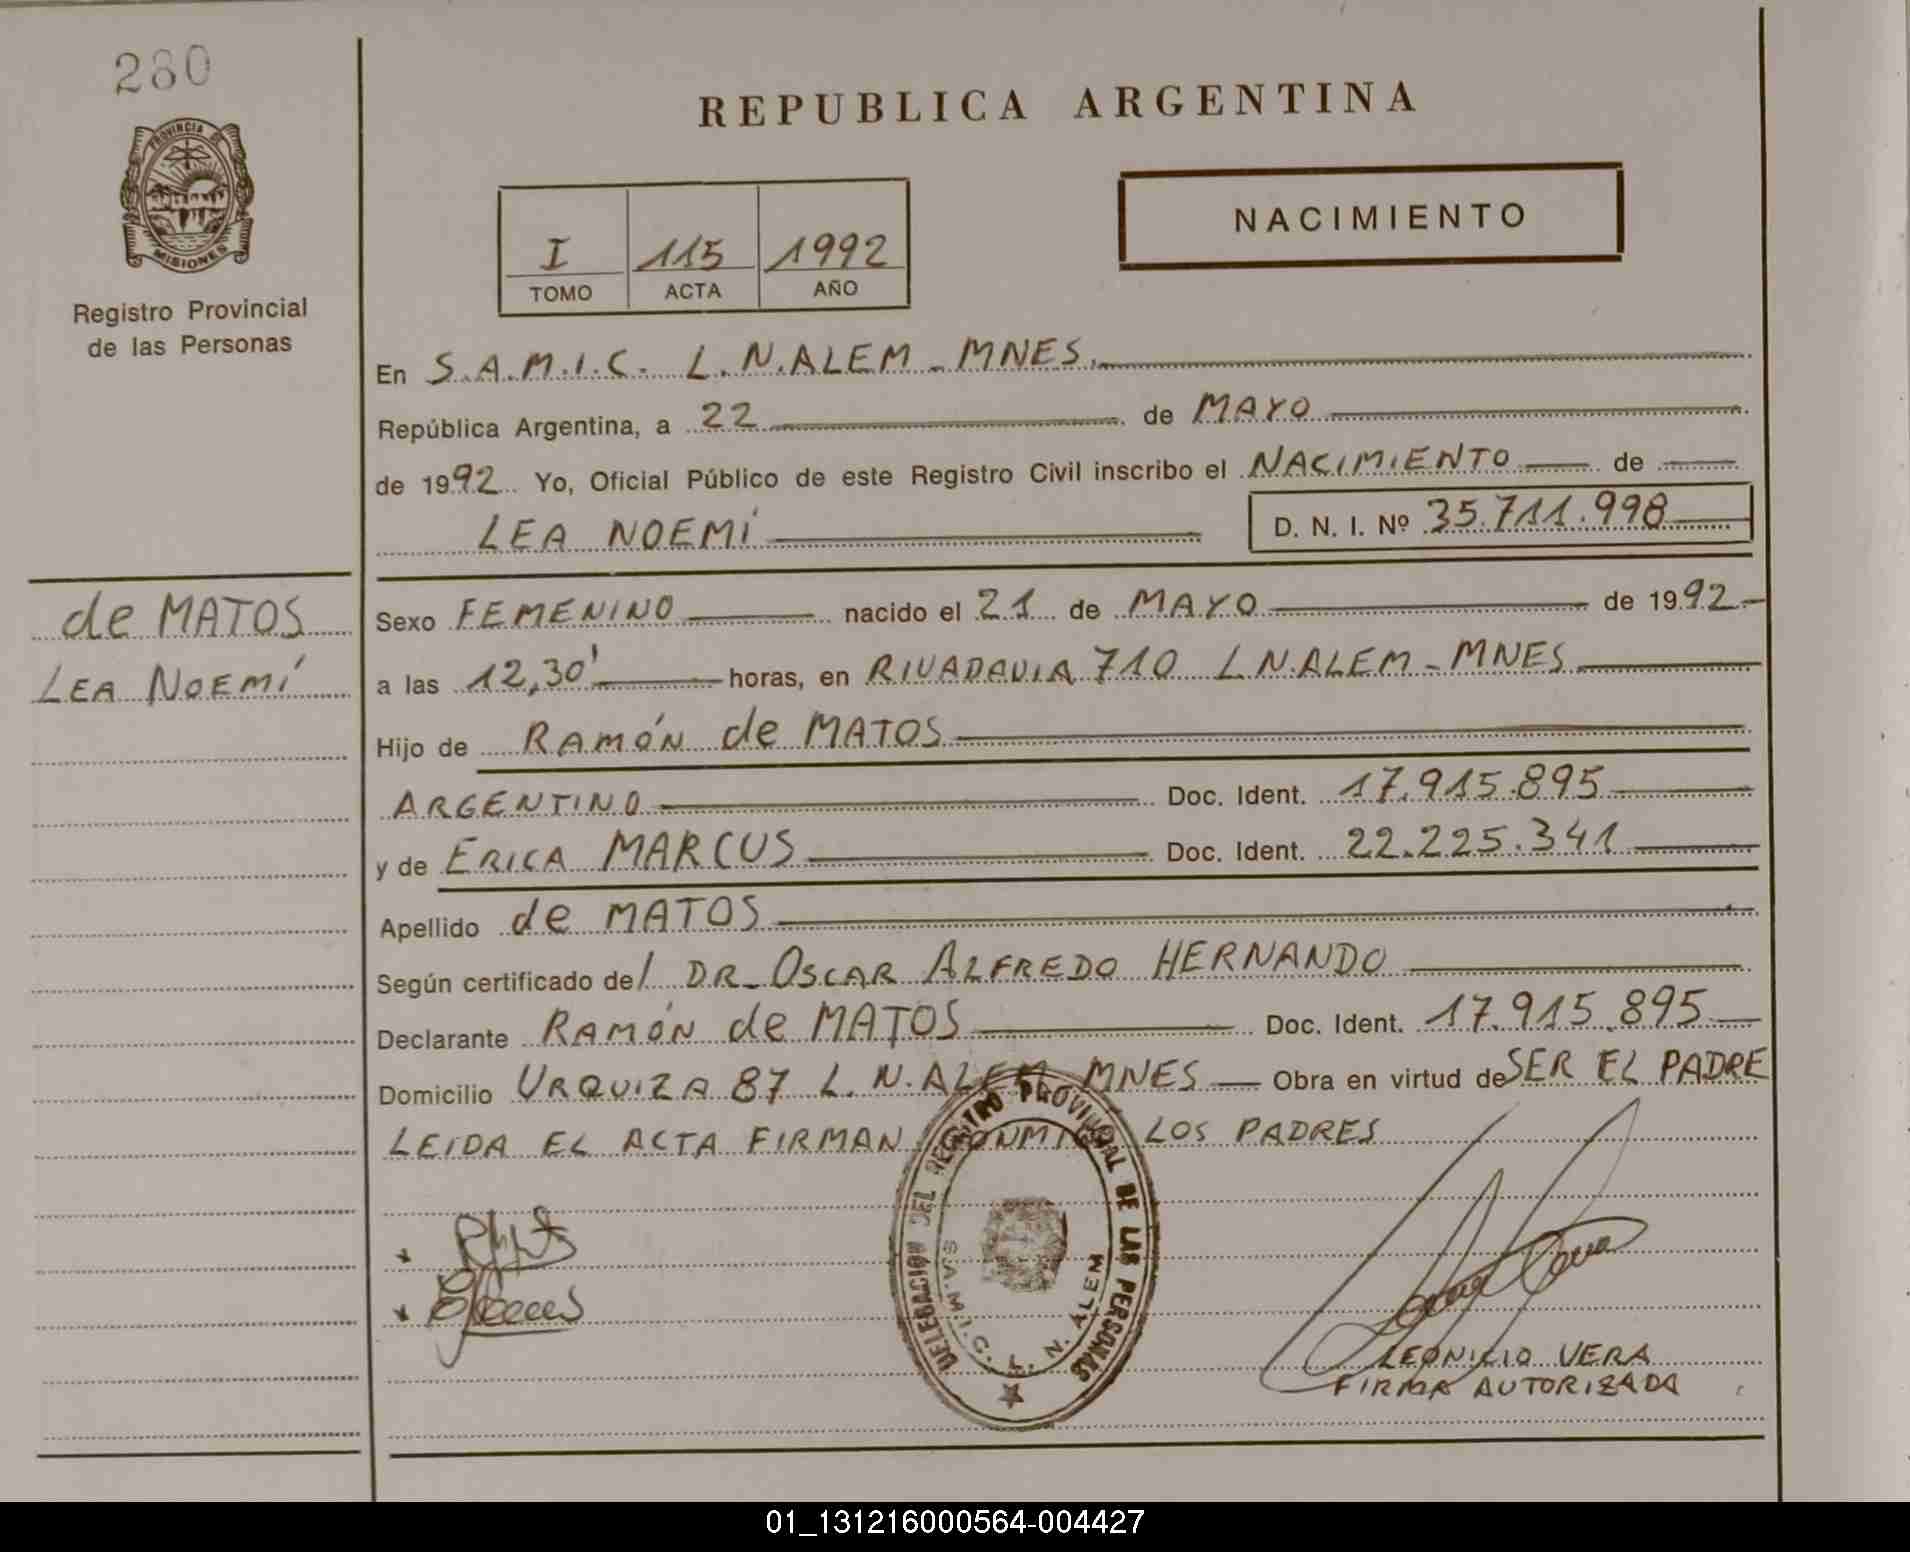 280
PROVINCIA DE
MISIONES
Registro Provincial
de las Personas
de MATOS
LEA NOEMÍ
REPUBLICA ARGENTINA
I 115 1992
TOMO ACTA AÑO
NACIMIENTO
En S.A.M.I.C. L.N.ALEM - MNES.
República Argentina, a 22 de MAYO
de 1992 Yo, Oficial Público de este Registro Civil inscribo el NACIMIENTO de
LEA NOEMÍ D. N. I. Nº 35.711.998
Sexo FEMENINO nacido el 21 de MAYO de 1992
a las 12,30' horas, en RIVADAVIA 710 L.N.ALEM - MNES
Hijo de RAMÓN de MATOS
ARGENTINO Doc. Ident. 17.915.895
y de ERICA MARCUS Doc. Ident. 22.225.341
Apellido de MATOS
Según certificado de/ DR. OSCAR ALFREDO HERNANDO
Declarante RAMÓN de MATOS Doc. Ident. 17.915.895
Domicilio URQUIZA 87 L.N.ALEM MNES Obra en virtud de SER EL PADRE
LEIDA EL ACTA FIRMAN CONMIGO LOS PADRES
DELEGACION DEL REGISTRO PROVINCIAL DE LAS PERSONAS
S.A.M.I.C. L. N. ALEM
LEONICIO VERA
FIRMA AUTORIZADA
01_131216000564-004427